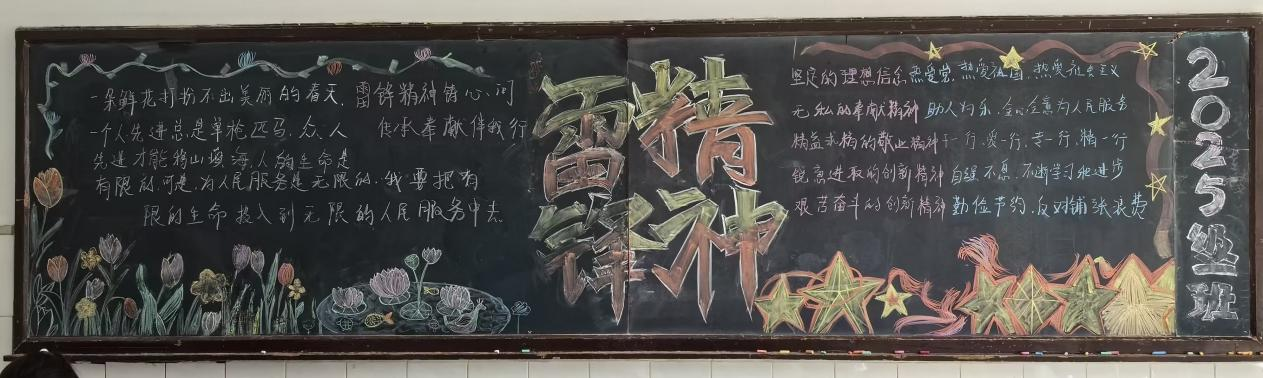 一朵鲜花打扮不出美丽的春天,
雷锋精神铸心、问
一个人先进总是单枪匹马,众人
传承奉献伴我行
先进才能移山填海,人的生命是
有限的,可是,为人民服务是无限的,我要把有
限的生命投入到无限的人民服务中去
雷锋
精神
坚定的理想信念 热爱党、热爱祖国、热爱社会主义
无私的奉献精神 助人为乐、全心全意为人民服务
精益求精的敬业精神 干一行、爱一行、专一行、精一行
锐意进取的创新精神 自强不息、不断学习和进步
艰苦奋斗的创新精神 勤俭节约、反对铺张浪费
2025级班